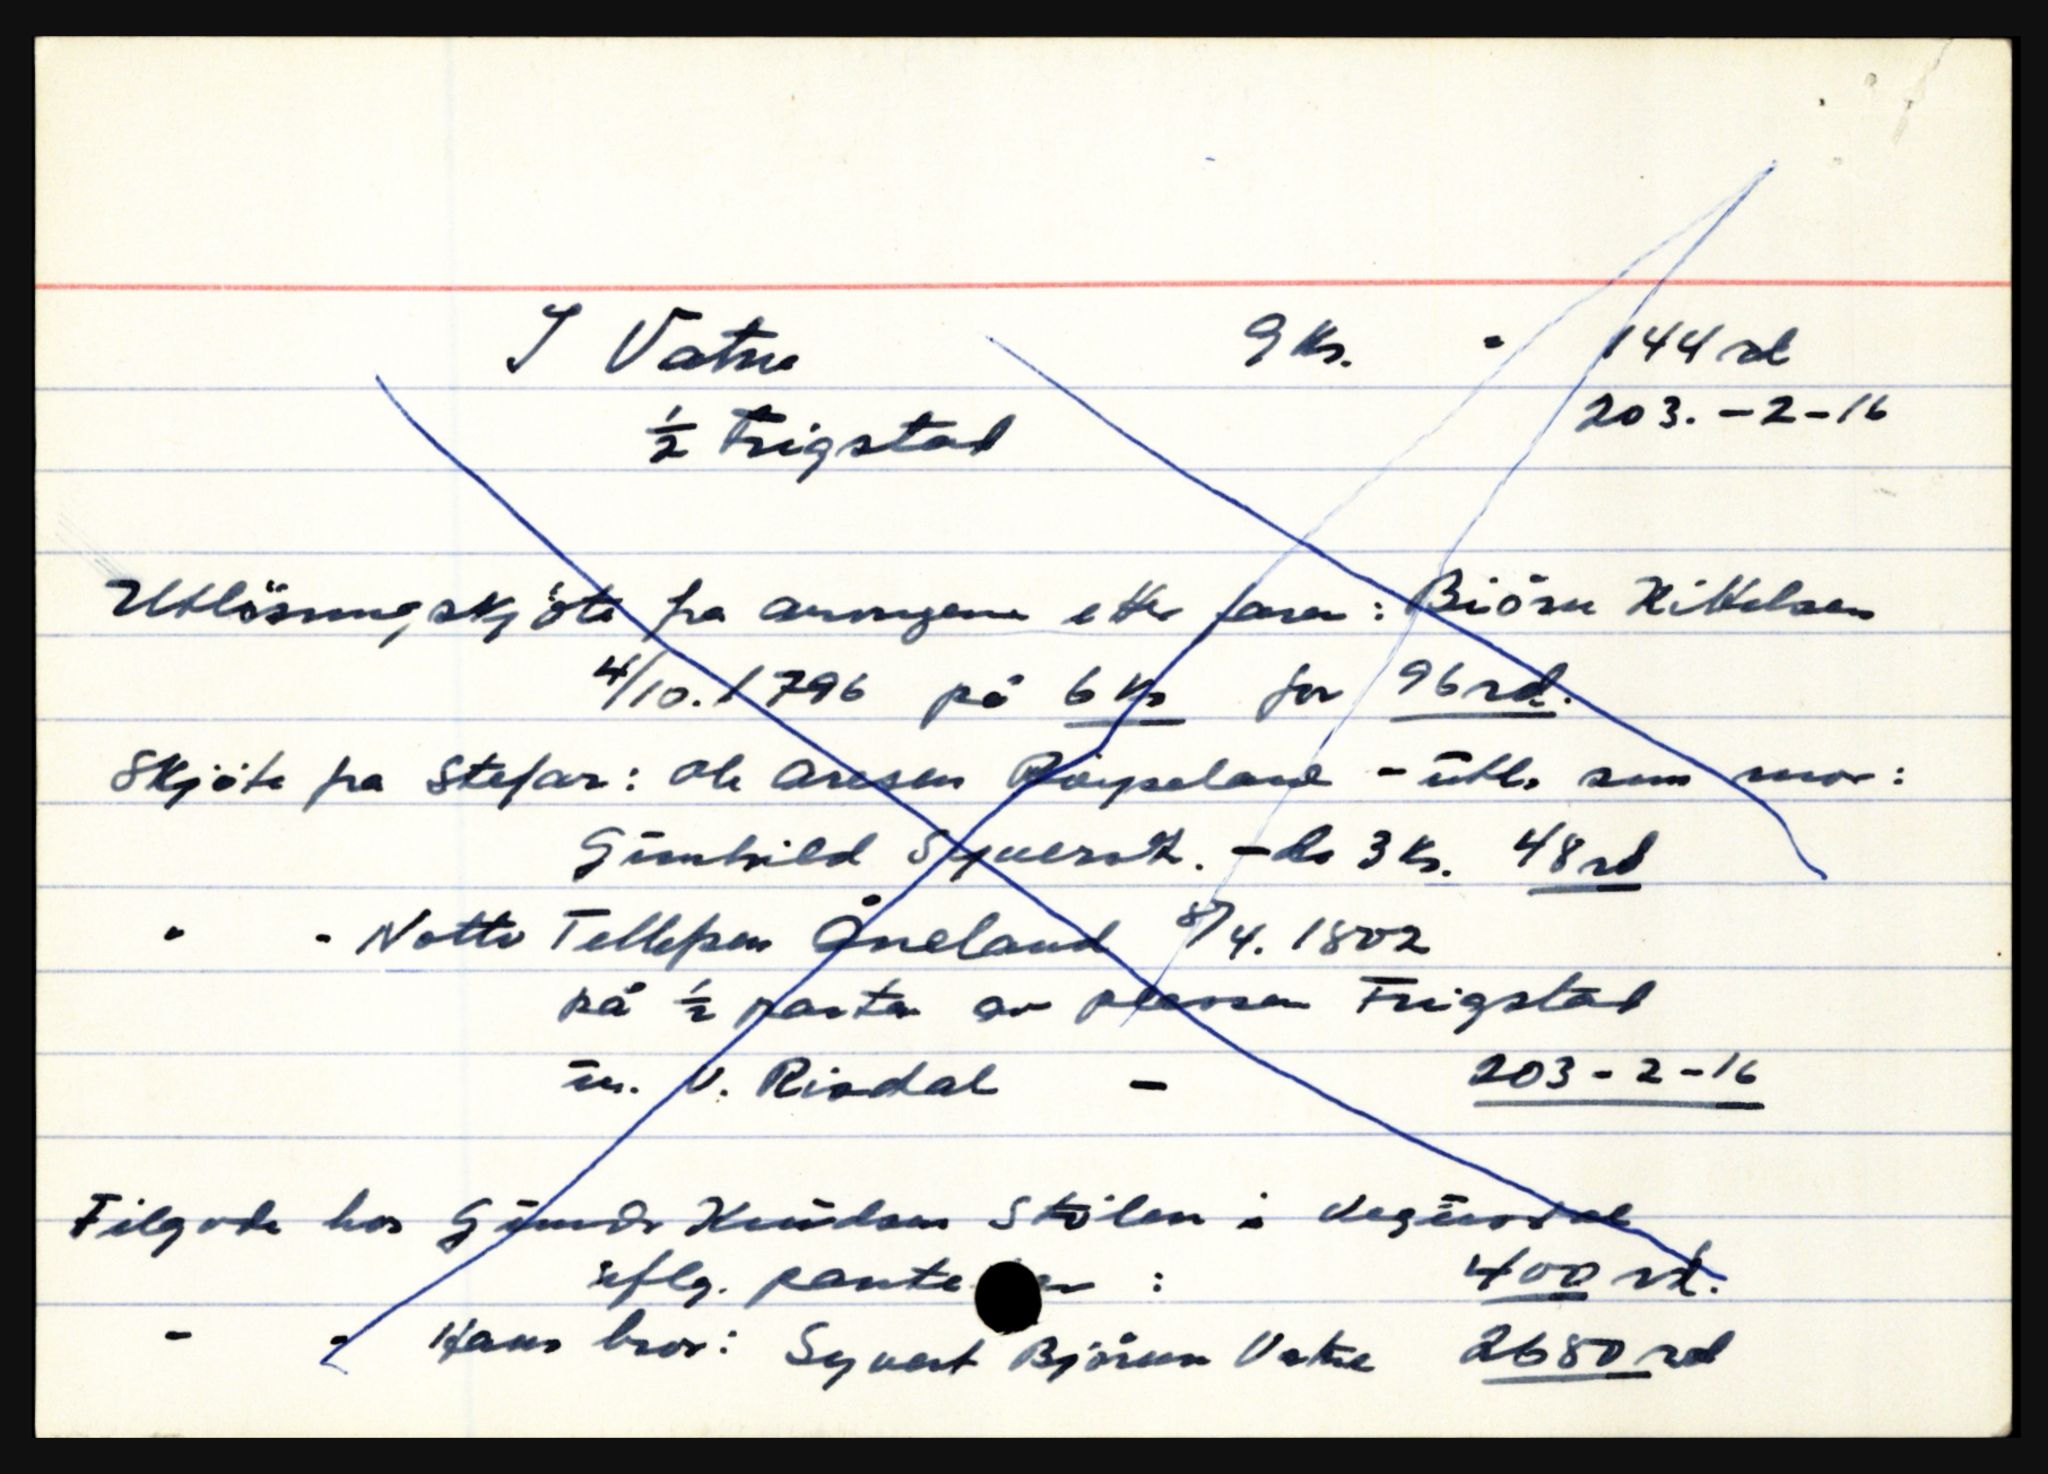 I Vatne 9 Ks. - 144 rd
½ Frigstad 203.-2-16
Utlösningskjöte fra arvingene etter faren: Biörn Kittelsen
4/10.1796 på 6 Ks for 96 rd.
Skjöte fra Stefar: Ole Aresen Röyseland - utl. som mor:
Gunhild Syversd. - do 3 Ks. 48 rd
" - Notto Tellefsen Åneland 8/4.1802
på ½ parten av plassen Frigstad
u. V. Risdal - 203-2-16
Tilgode hos Knudsen Stölen i Vegusdal
iflg. : 400 rd.
- - Hans bror: Syvert Björnsen Vatne 2680 rd